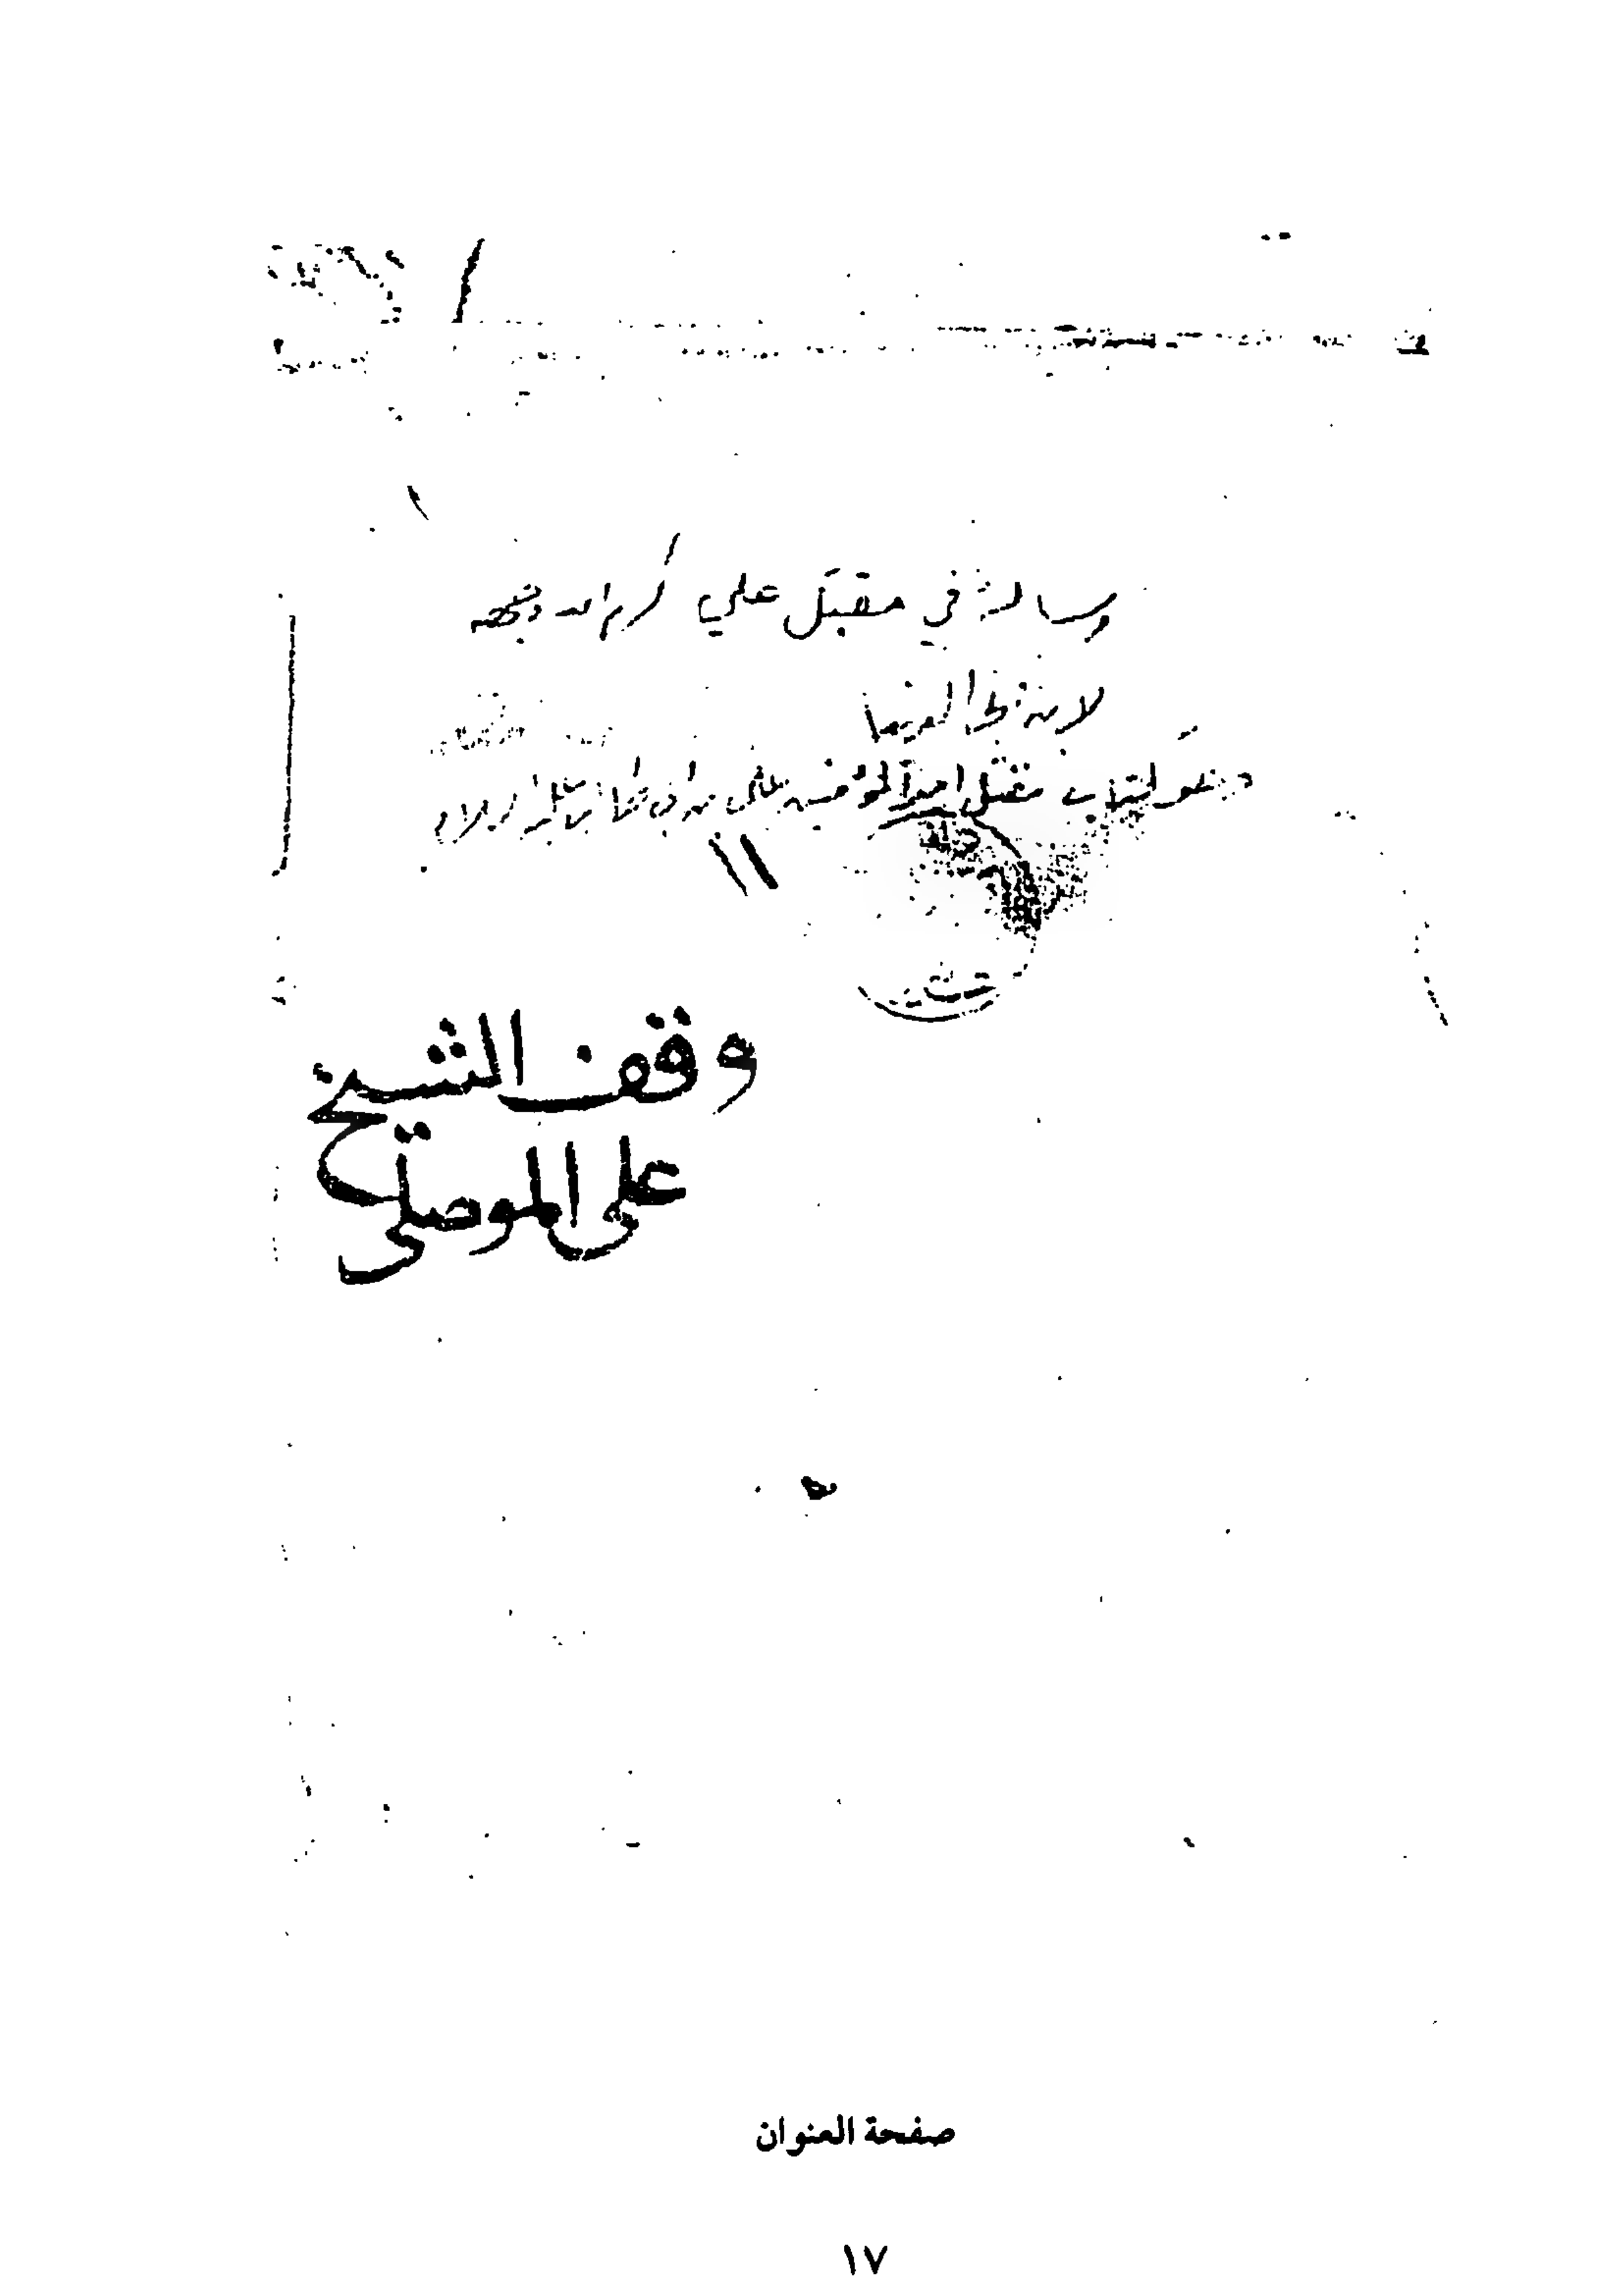 رسالة في مقتل علي كرم الله وجهه
لابن ابي الدنيا
مقتل امير المؤمنين علي بن ابي طالب عليه السلام
وقف الشيخ
على الموصلي
صفحة العنوان
١٧